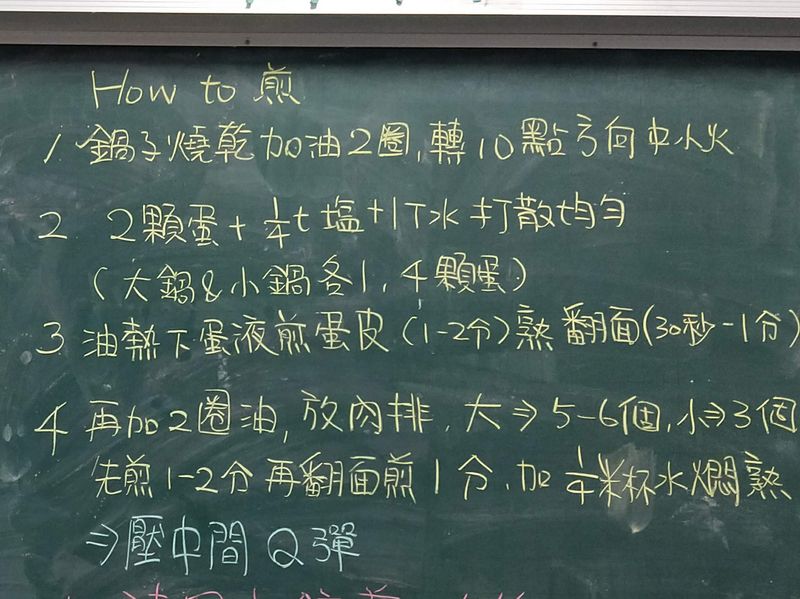 How to 煎
1. 鍋子燒乾加油2圈,轉10點方向中小火
2. 2顆蛋+1/4t塩+1T水打散均勻
(大鍋&小鍋各1,4顆蛋)
3 油熱下蛋液煎蛋皮(1-2分)熟翻面(30秒-1分)
4 再加2圈油,放肉排,大⇒5-6個,小⇒3個
先煎1-2分再翻面煎1分,加1/4米杯水燜熟
⇒壓中間Q彈